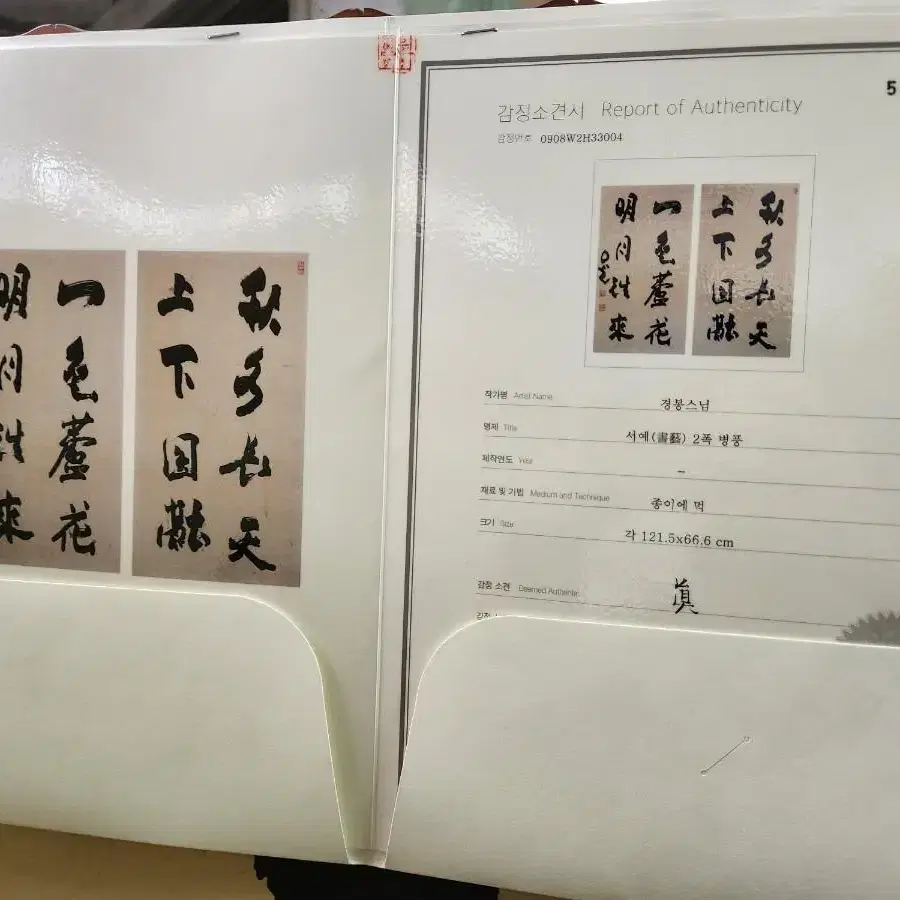 秋水長天
上下圓融
一色蘆花
明月往來
5
감정소견서 Report of Authenticity
감정번호 0908W2H33004
秋水長天
上下圓融
一色蘆花
明月往來
작가명 Artist Name 경봉스님
명제 Title 서예(書藝) 2폭 병풍
제작연도 Year –
재료 및 기법 Medium and Technique 종이에 먹
크기 Size 각 121.5x66.6 cm
감정 소견 Deemed Authentic 眞